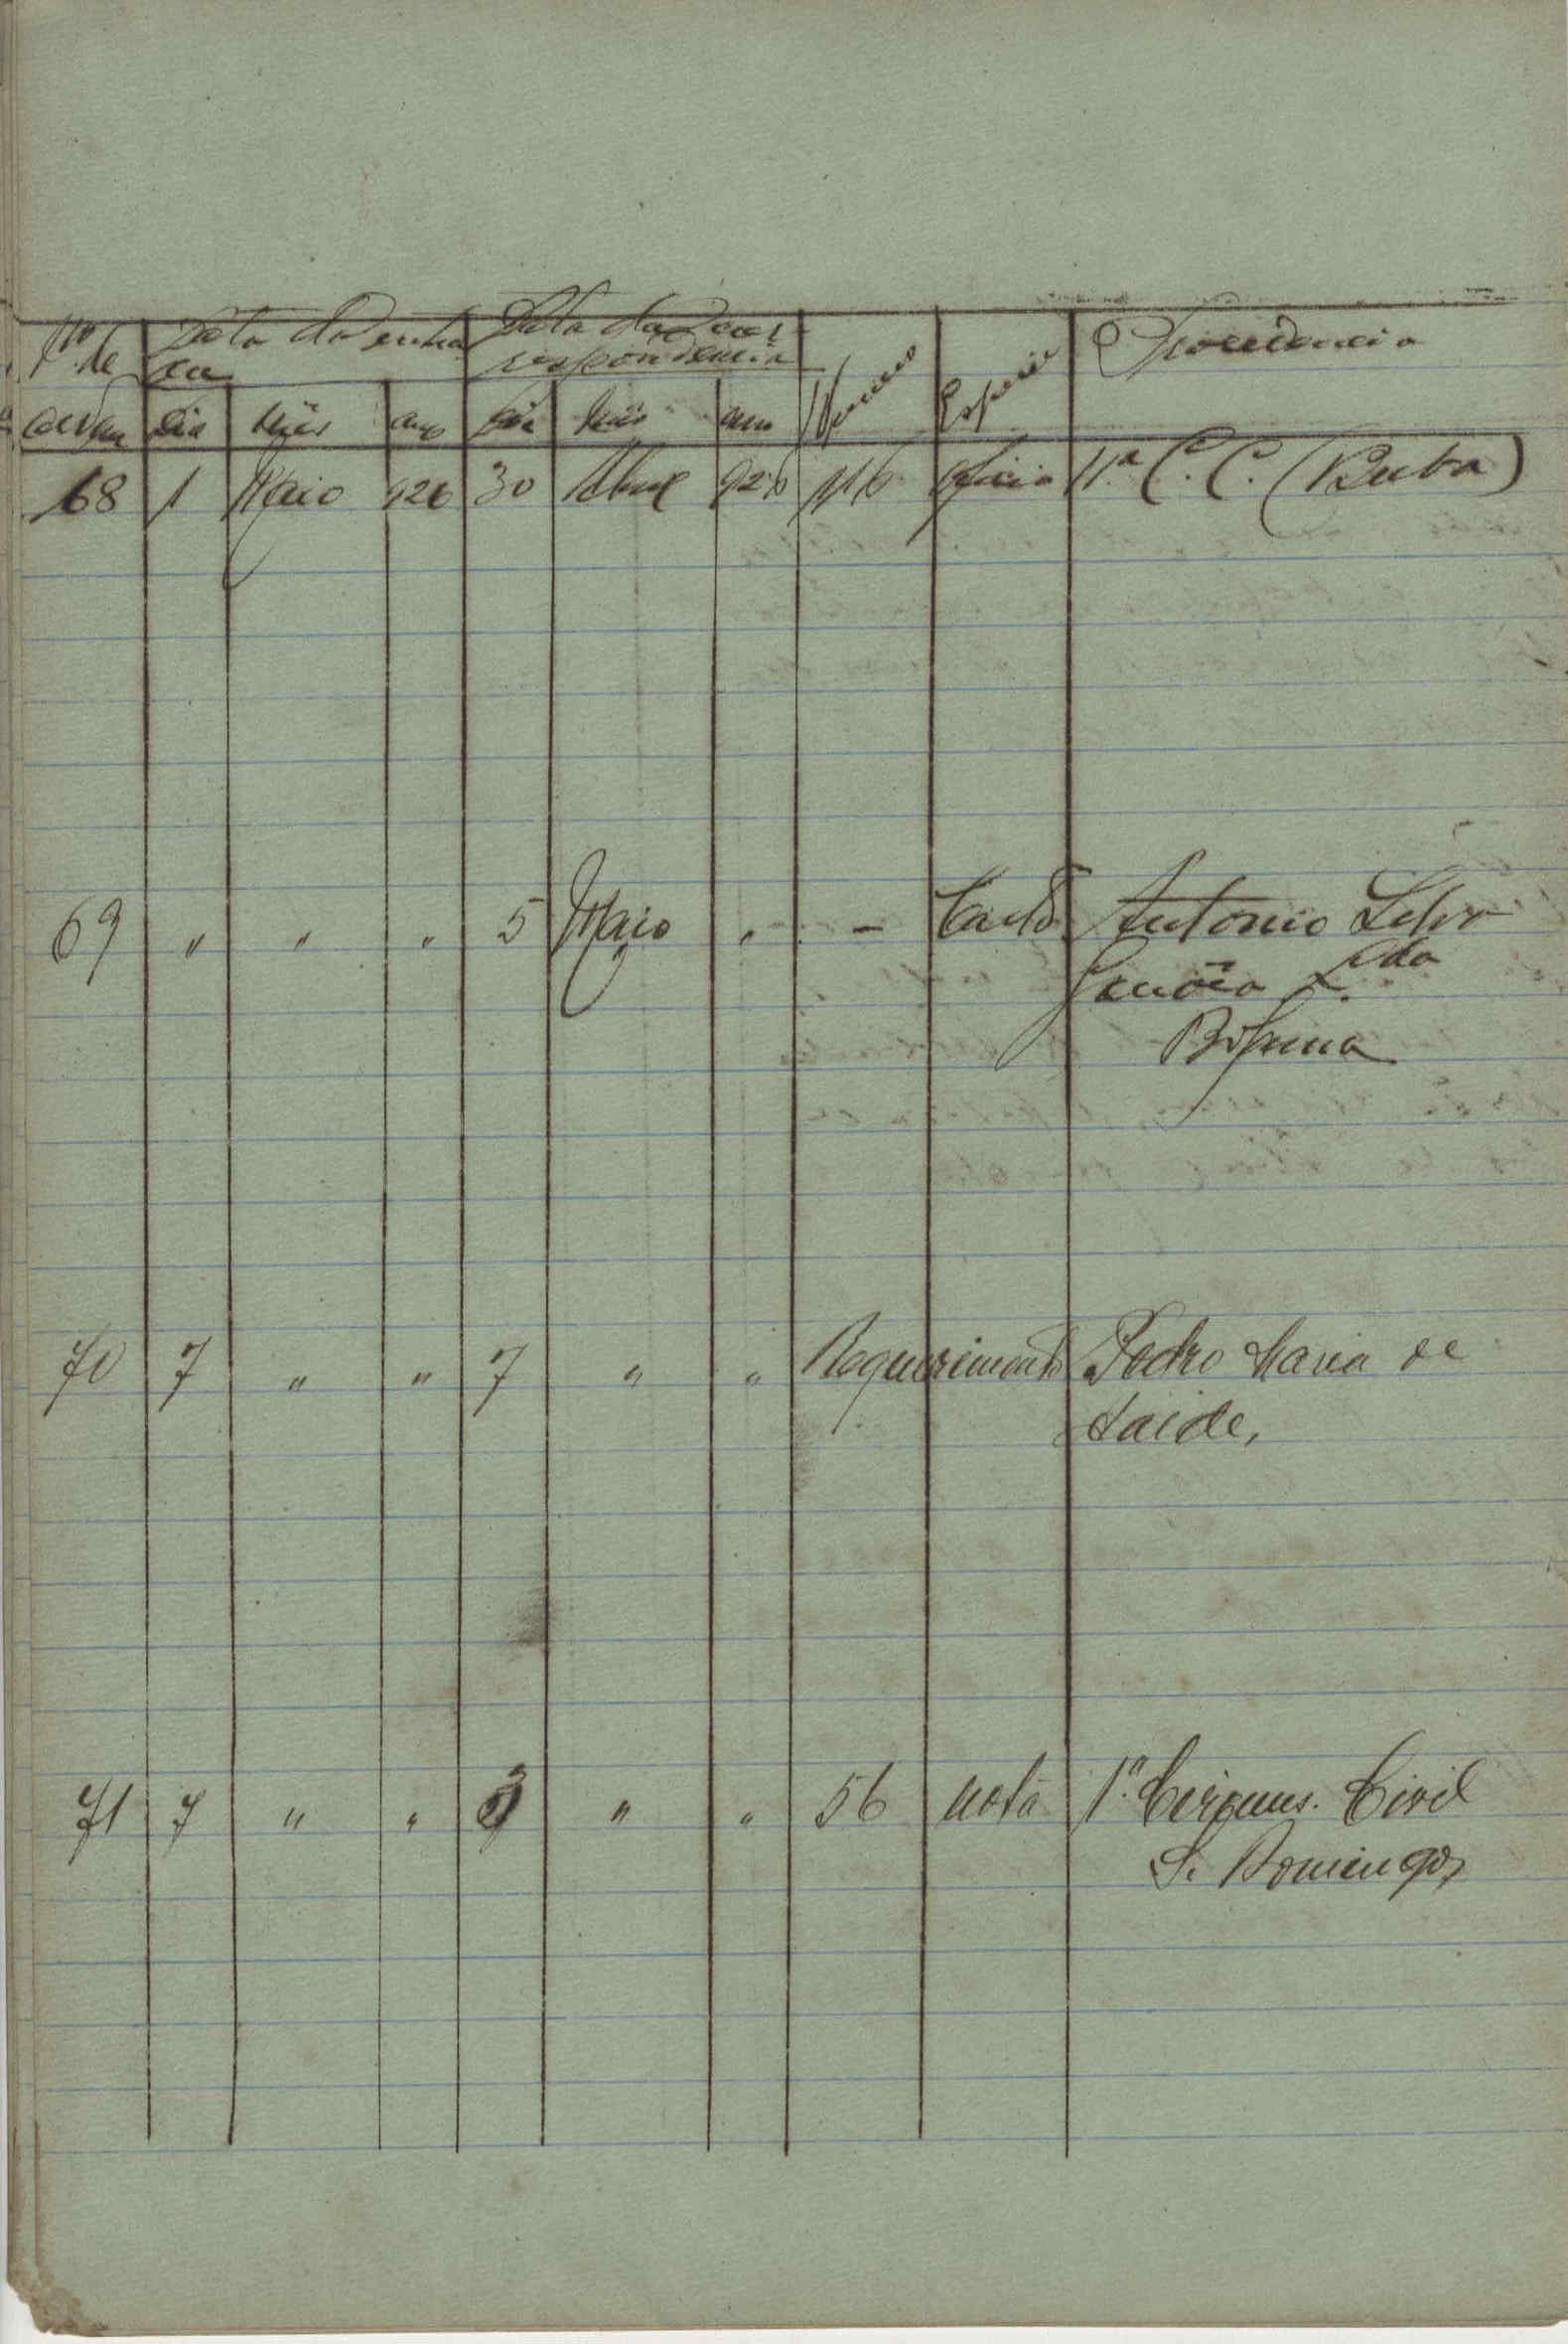 Nº de Data da entra Data da cor Numero Especie Procedencia
da respondencia
ordem dia mês ano dia mês ano
68 1 Maio 926 30 Abril 926 116 oficio 11ª C. C. (Buba)
69 " " " 5 Maio " - Carta Antonio Silva
Gouvêa Lda
Bissau
70 7 " " 7 " " Requerimento Pedro Maria de
71 7 " " 3 " " 56 nota 1ª Circuns. Civil
S. Domingos